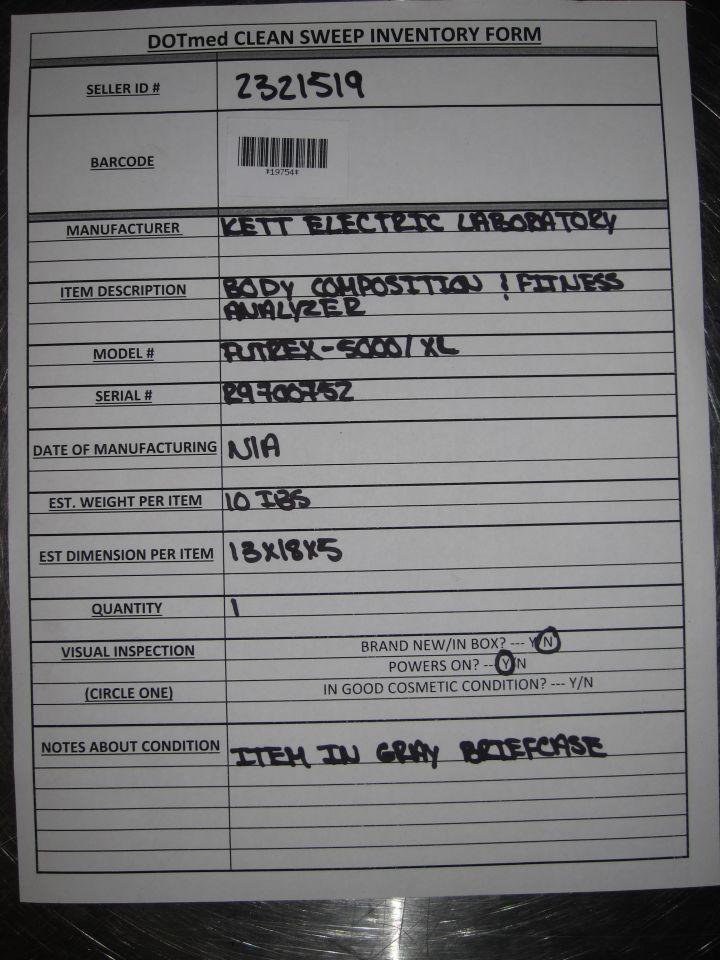 DOTmed CLEAN SWEEP INVENTORY FORM
SELLER ID # 2321519
BARCODE
*19754*
MANUFACTURER KETT ELECTRIC LABORATORY
ITEM DESCRIPTION BODY COMPOSITION & FITNESS
ANALYZER
MODEL # FUTREX-5000/XL
SERIAL # 29700752
DATE OF MANUFACTURING N/A
EST. WEIGHT PER ITEM 10 IBS
EST DIMENSION PER ITEM 13X18X5
QUANTITY 1
VISUAL INSPECTION BRAND NEW/IN BOX? --- Y/N
POWERS ON? --- Y/N
(CIRCLE ONE) IN GOOD COSMETIC CONDITION? --- Y/N
NOTES ABOUT CONDITION ITEM IN GRAY BRIEFCASE